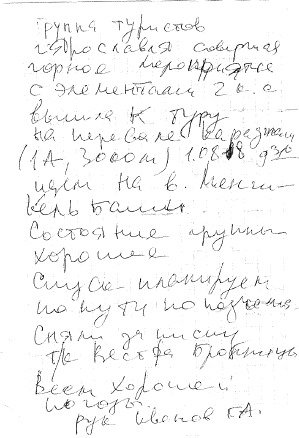 группа туристов
г Ярославля совершая
горное мероприятие
с элементами 2 к.с
вышла к туру
на перевале
(1А, 3000м) 1.08 9 30
идем на в. Менги-
кель Баши.
Состояние группы
хорошее
Спуск планируем
по пути подъема
Сняли записку
Всем хорошей
погоды.
рук Иванов Г.А.